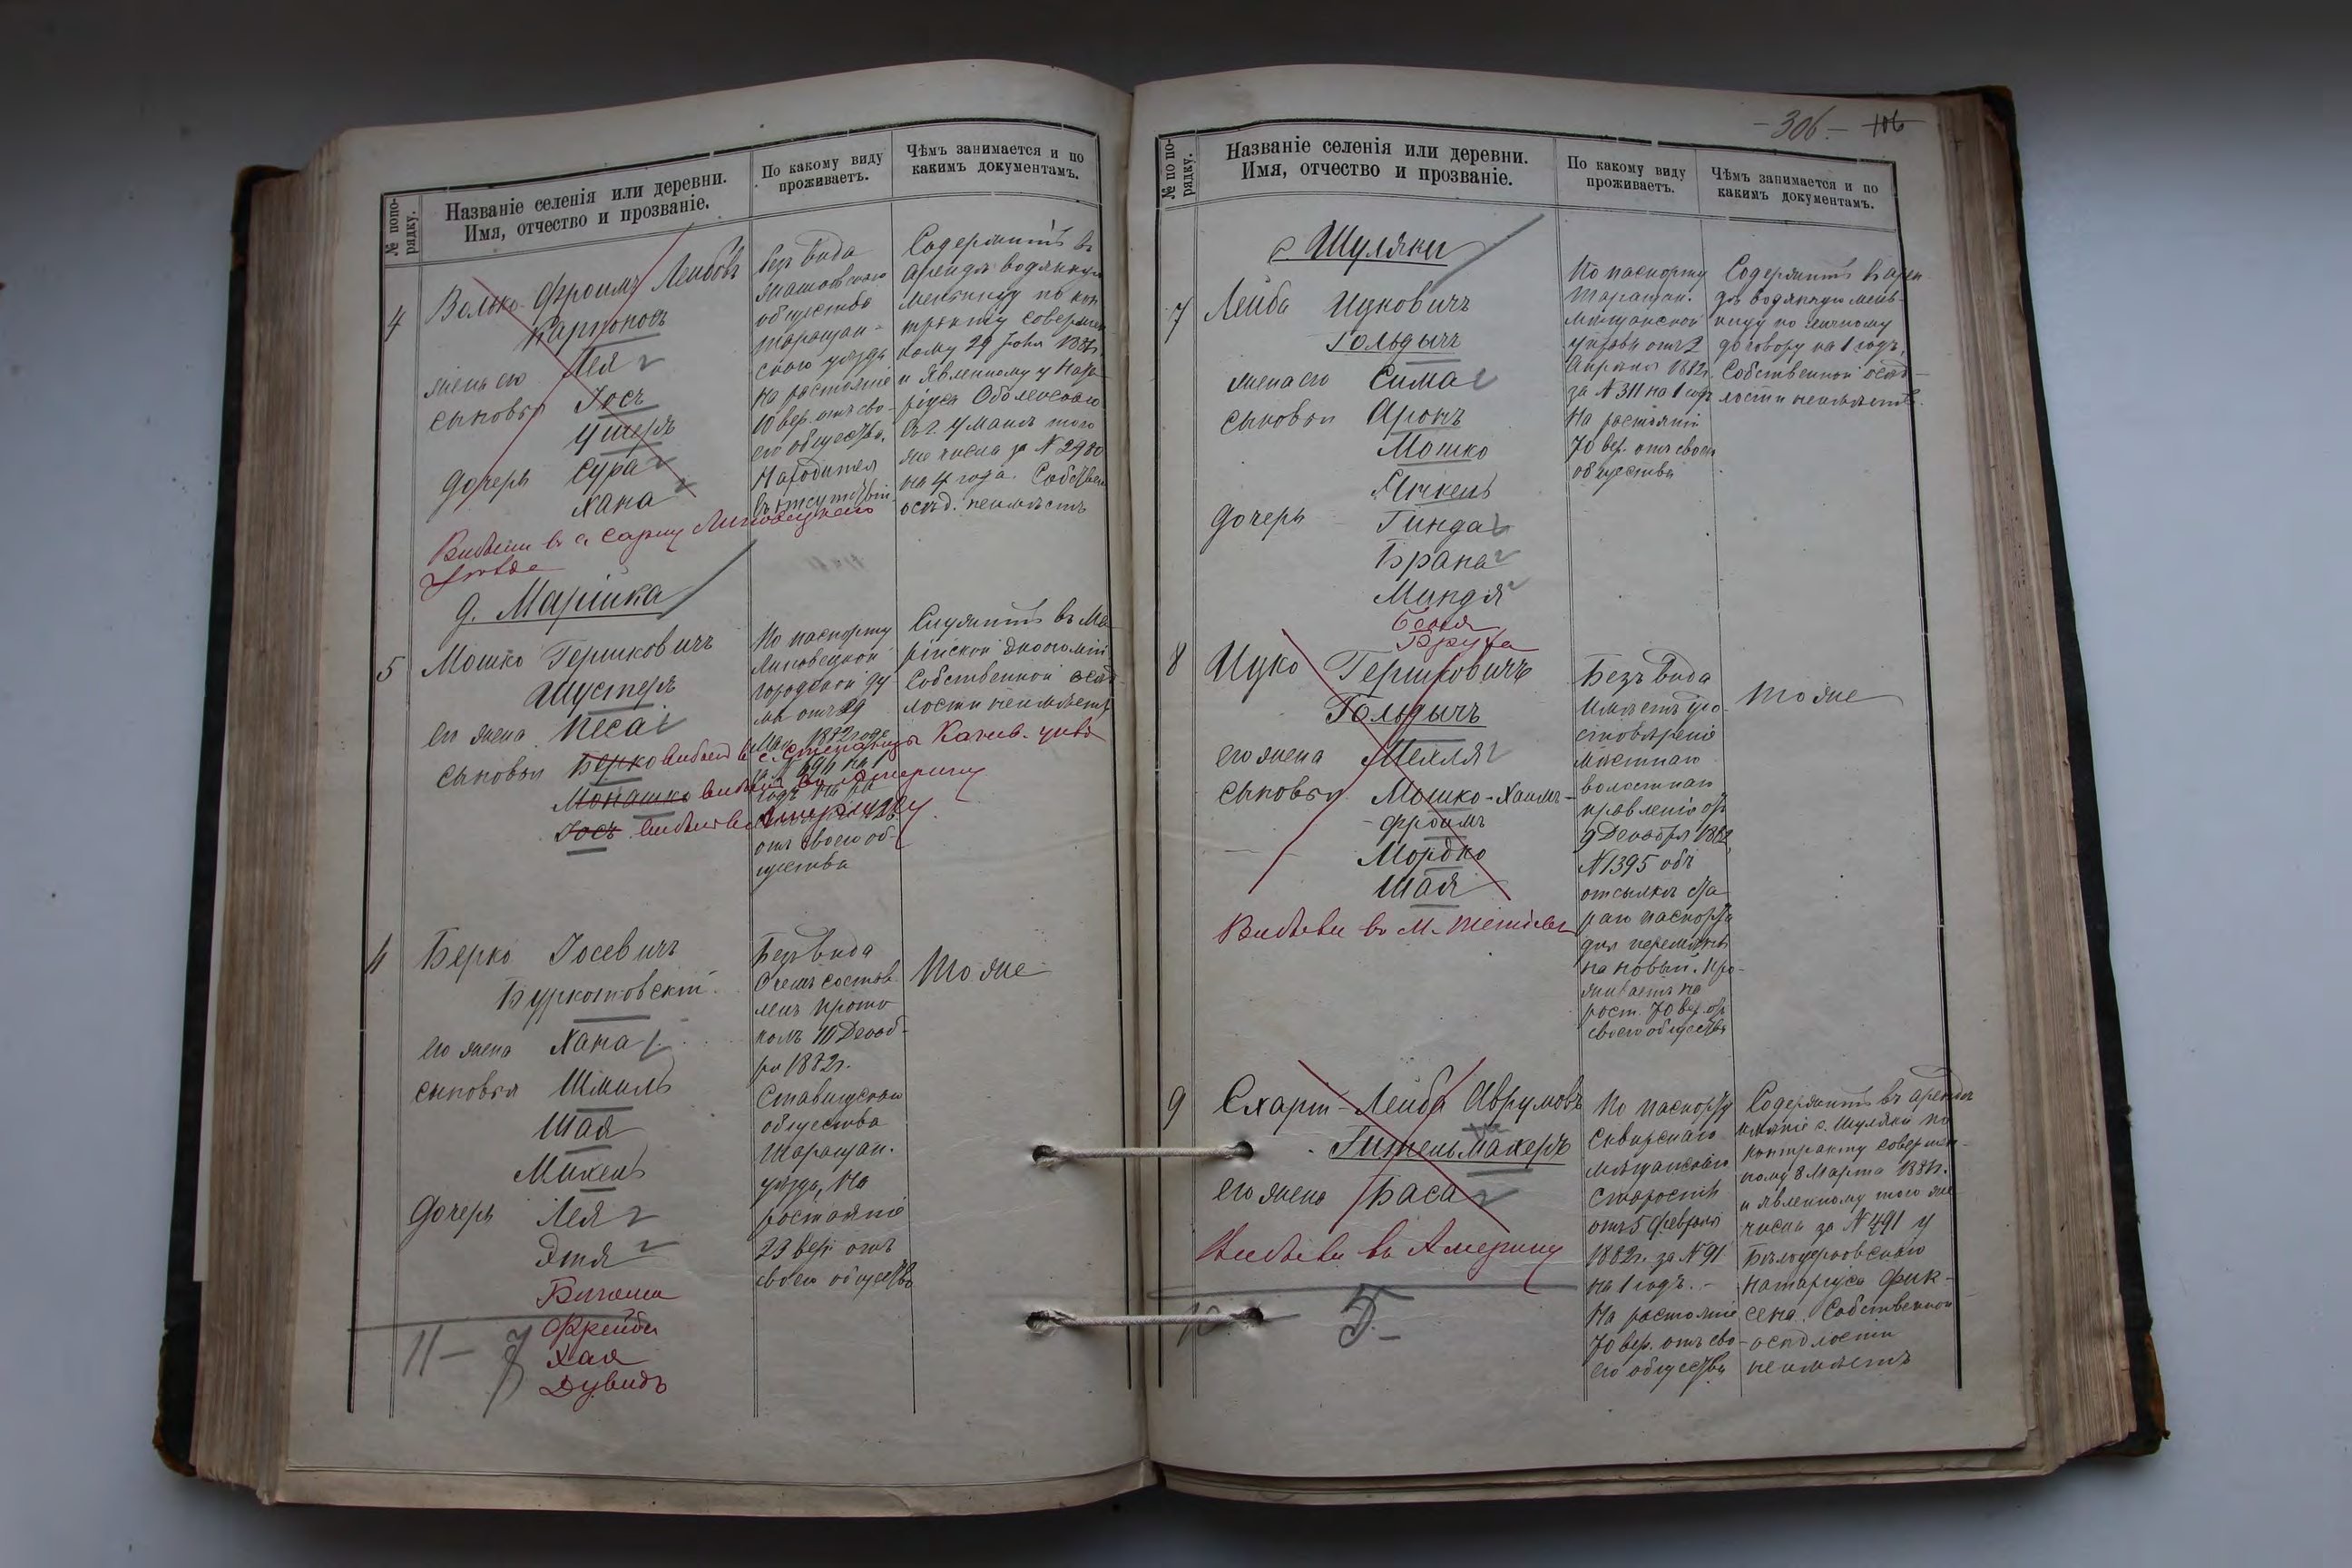 № попо-
рядку.
Названіе селенія или деревни.
Имя, отчество и прозваніе.
По какому виду
проживаетъ.
Чѣмъ занимается и по
какимъ документамъ.
4
Волько-Фроимъ Лейбовъ
жена его Лея
сыновья Іосъ
Ушеръ
дочерь Сура
Хана
Безъ вида
общества
таращан-
скаго уѣзда
На растояніе
10 вер. отъ сво-
его общества.
Находится
Содержитъ въ
арендѣ водяную
мельницу по кон-
тракту совершен-
ному 29 Іюня 1881г.
и явленному у Нота-
ріуса
въ г. Умань того
же числа за № 2980
на 4 года. Собствен
осѣд. неимѣетъ
д. Марійка
5
Мошко Гершковичъ
Шустеръ
его жена Песа
сыновья Берко
Монашко
Іосъ
въ Америку
въ Америку
По паспорту
Липовецкой
городской ду-
мы отъ 29
Мая 1882 года
отъ своего об-
щества
Служитъ въ Ма-
рійской экономіи
Собственной осѣд-
лости неимѣетъ
6
Берко Іосевичъ
Буркотовскій
его жена Хана
сыновья Шмиль
Шая
Микель
дочерь Лея
Этя
Фрейда
Хая
Дувидъ
11 — 7
Безъ вида
О чемъ состав-
ленъ прото-
колъ 10 Декаб-
ря 1882г.
Ставищскаго
общества
Таращан.
уѣзда, На
растояніе
23 вер. отъ
своего общества
То же
— 306. — 106
№ по по-
рядку.
Названіе селенія или деревни.
Имя, отчество и прозваніе.
По какому виду
проживаетъ.
Чѣмъ занимается и по
какимъ документамъ.
с Шуляки
7
Лейба Ицковичъ
Гольдычъ
жена его Сима
сыновья Аронъ
Мошко
Янкель
дочерь Гинда
Брана
Миндя
По паспорту
Таращан.
мѣщанской
управы отъ 2
Апрѣля 1882г.
за № 311 на 1 годъ
На растояніи
70 вер. отъ своего
общества
Содержитъ въ арен-
дѣ водяную мель-
ницу по личному
договору на 1 годъ.
Собственной осѣд-
лости неимѣетъ.
8
Ицко Гершковичъ
Гольдычъ
его жена Шейля
сыновья Мошко-Хаимъ-
-Фроимъ
Мордко
Шая
Безъ вида
Имѣетъ удо-
стовѣреніе
мѣстнаго
волостнаго
правленія отъ
9 Декабря 1882
№ 1395 объ
отсылкѣ ста-
раго паспорта
для перемѣны
на новый. Про-
живаетъ на
раст. 70 вер. отъ
своего общества
То же
9
Схарт-Лейба Аврумовъ
Гительмахеръ
его жена Баса
Выбыли въ Америку
10 — 5. —
По паспорту
Сквирскаго
мѣщанскаго
Старосты
отъ 5 февраля
1882г. за № 91
на 1 годъ. —
На растояніе
70 вер. отъ сво-
его общества
Содержитъ въ арендѣ
имѣніе с. Шуляки по
контракту совершен-
ному 8 Марта 1881г.
и явленному того же
числа за № 491 у
Бѣлоцерковскаго
нотаріуса Фик-
сена. Собственной
осѣдлости
неимѣетъ